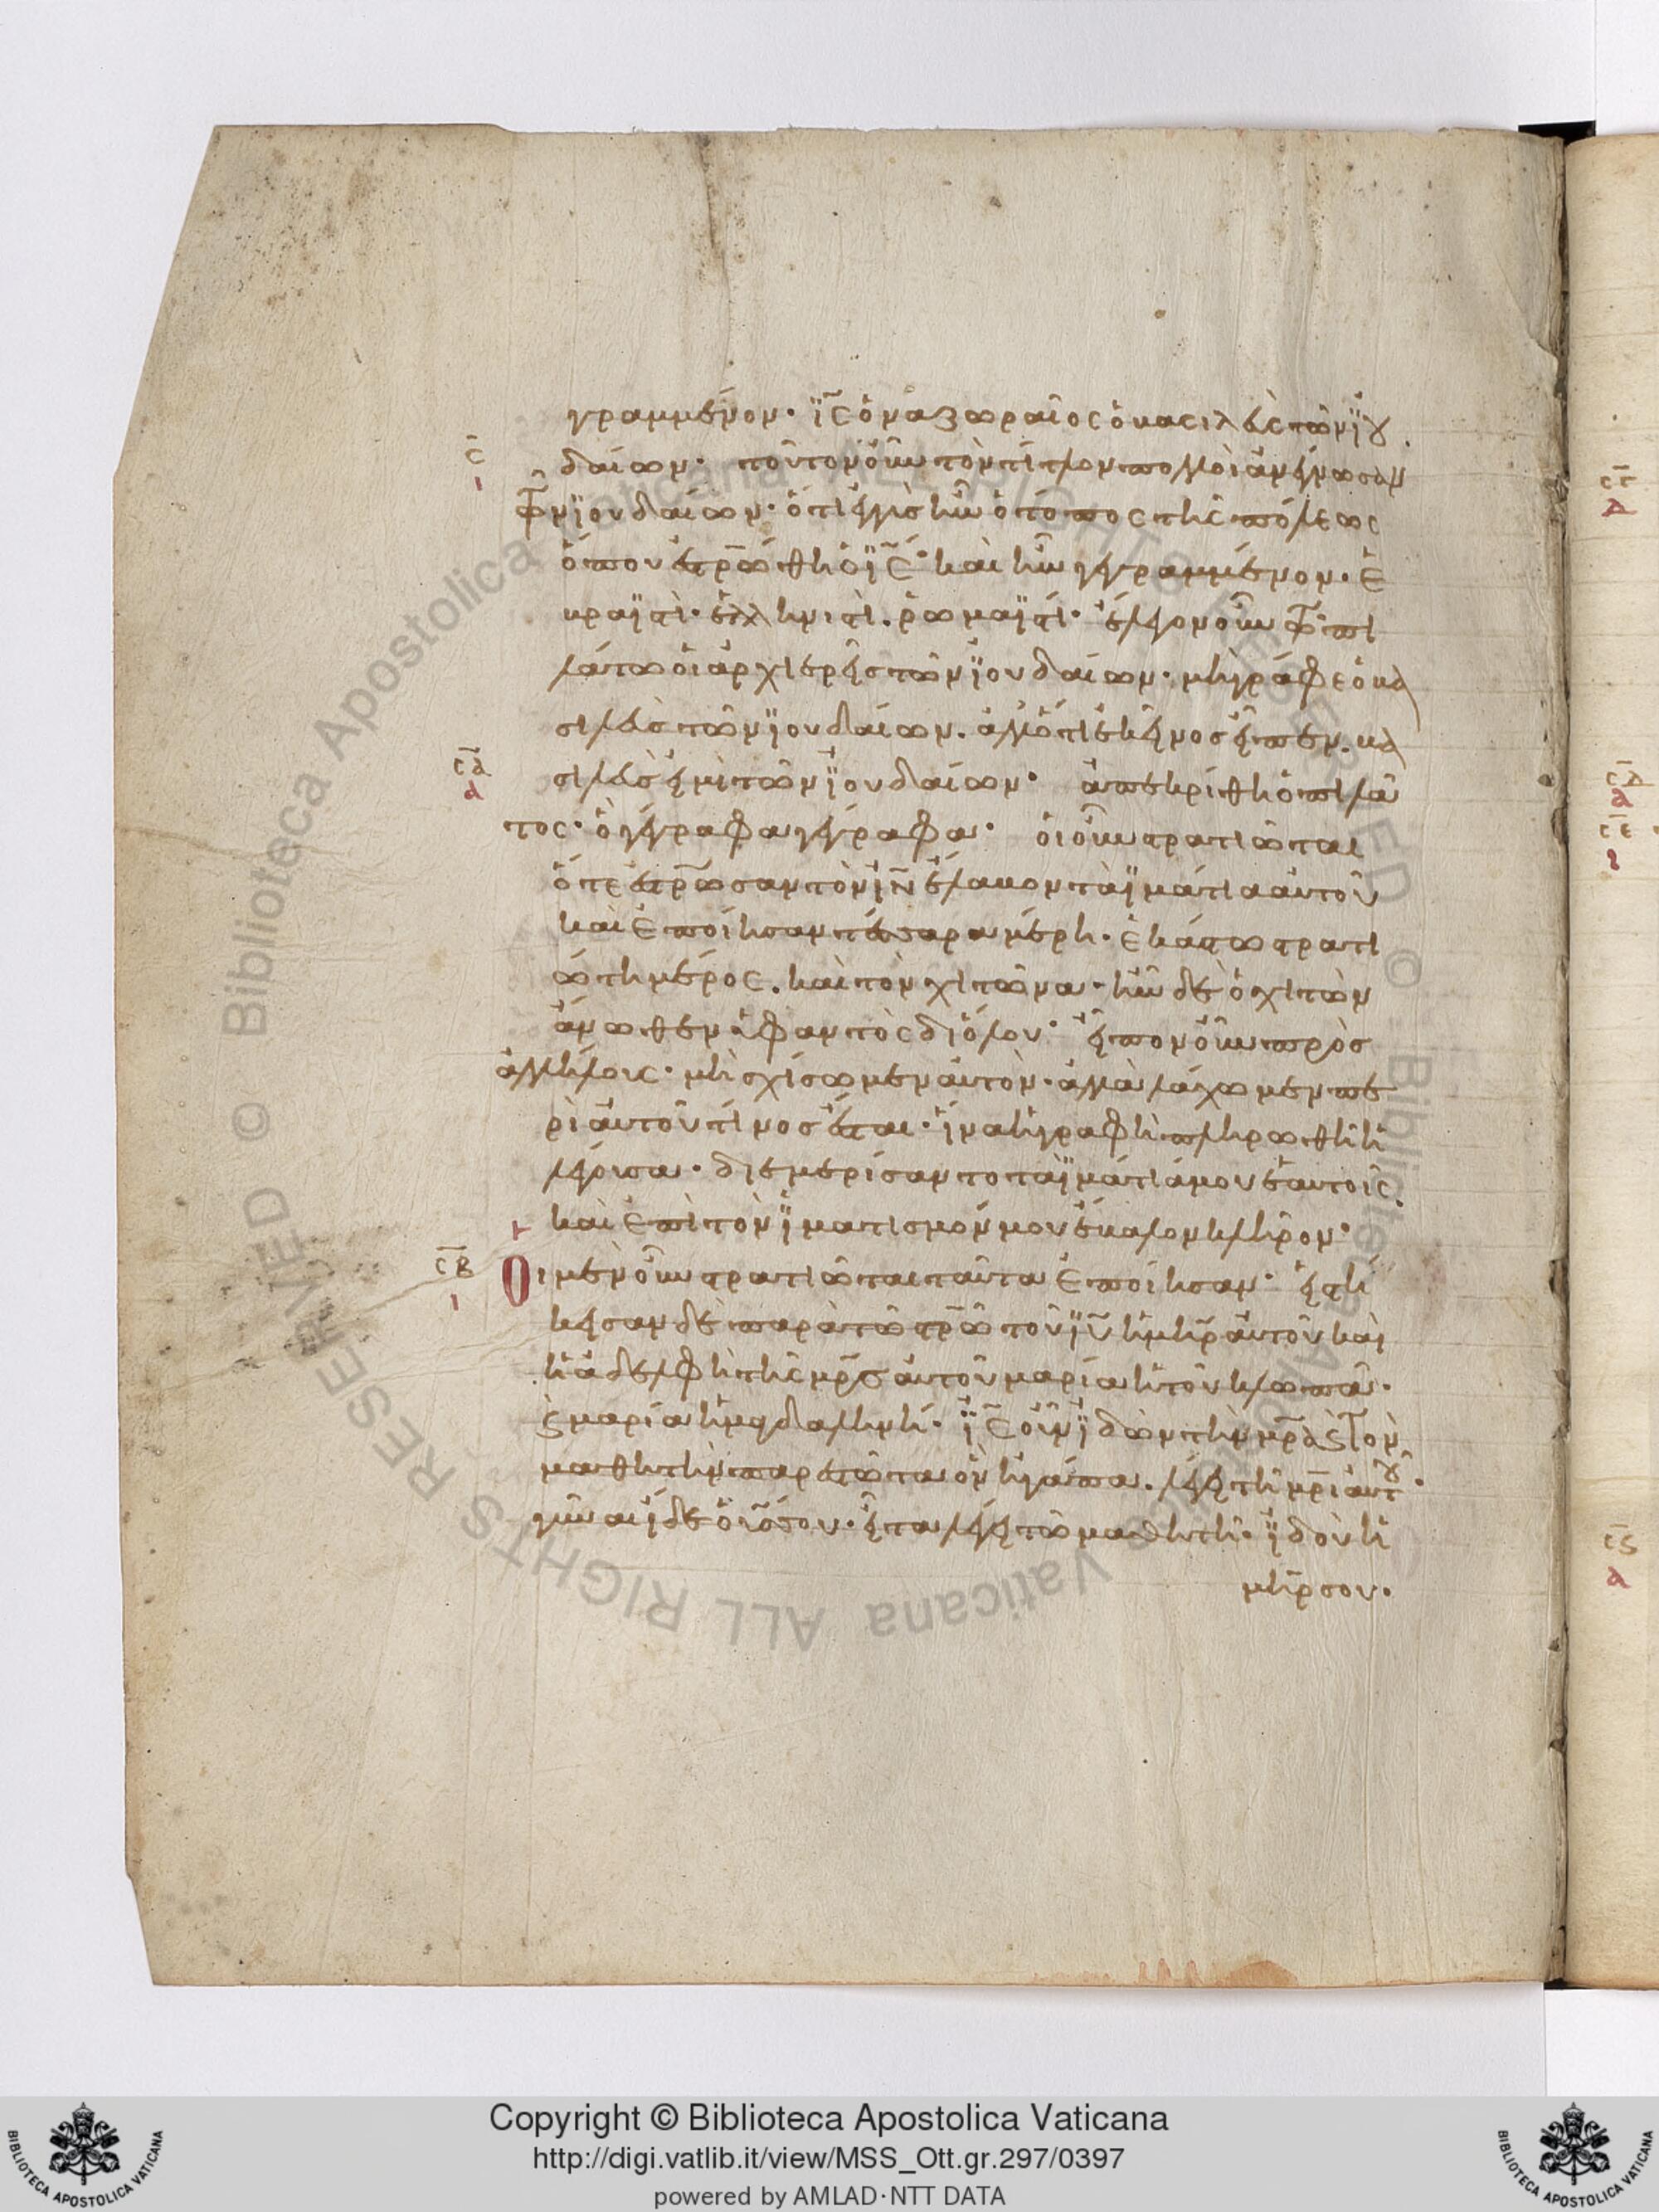 γραμμένον· ϊς ὁ ναζωραῖος ὁ βασιλεὺς τῶν ϊου
σ̄
ι
δαίων· τοῦτον οὖν τὸν τίτλον πολλοὶ ἀνέγνωσαν
τῶν ϊουδαίων· ὅτι ἐγγὺς ἦν ὁ τόπος τῆς πόλεως
ὅπου ἐστρ̅ώθη ὁ ϊς· καὶ ἦν γεγραμμένον· ἑ
βραϊστὶ· ἑλληνιστὶ. ῥωμαϊστί· ἔλεγον οὖν τῶ πι
λάτω οἱ ἀρχιερεῖς τῶν ϊουδαίων· μὴ γράφε ὁ βα
σιλεὺς τῶν ϊουδαίων. ἀλλ' ὅτι ἐκεῖνος εἶπεν. βα
σ̄α
δ
σιλεὺς εἰμὶ τῶν ϊουδαίων· ἀπεκρίθη ὁ πιλᾶ
τος· ὃ γέγραφα γέγραφα· οἱ οὖν στρατιῶται
ὅτε ἐστρ̅ωσαν τὸν ϊν ἔλαβον τὰ ϊμάτια αὐτοῦ
καὶ ἐποίησαν τέσσαρα μέρη· ἑκάστω στρατι
ώτη μέρος. καὶ τὸν χιτῶνα· ἦν δὲ ὁ χιτὼν
ἄνωθεν ὑφαντὸς δι' ὅλου· εἶπον οὖν πρὸς
ἀλλήλους· μὴ σχίσωμεν αὐτὸν· ἀλλὰ λάχωμεν πε
ρὶ αὐτοῦ τίνος ἔσται· ἵνα ἡ γραφὴ πληρωθῆ ἡ
λέγουσα· διεμερίσαντο τὰ ϊμάτιά μου ἑαυτοῖς
καὶ ἐπὶ τὸν ϊματισμόν μου ἔβαλον κλῆρον·
σ̄β
ι
Οἱ μὲν οὖν στρατιῶται ταῦτα ἐποίησαν· εἱστή
κεισαν δὲ παρὰ τῶ στρ̅ῶ τοῦ ϊυ ἡ μηρ αὐτοῦ καὶ
ἡ ἀδελφὴ τῆς μρς αὐτοῦ μαρία ἡ τοῦ κλωπᾶ·
ϗ μαρία ἡ μαγδαληνή· ϊς οὖν ϊδὼν τὴν μρα ϗ τὸν
μαθητὴν παρεστῶτα ὃν ἠγάπα. λέγει τῆ μρι αὐτου·
γύναι ϊδε ὁ υς σου· εἶτα λέγει τῶ μαθητῆ· ϊδοὺ ἡ
μηρ σου·
Copyright © Biblioteca Apostolica Vaticana
http://digi.vatlib.it/view/MSS_Ott.gr.297/0397
powered by AMLAD·NTT DATA